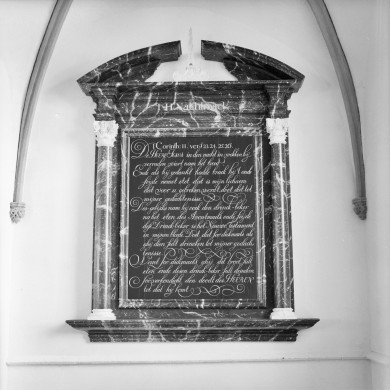 H. Nachtmael
1 Corinth: 11. vers 23.24.25.26.
De Heere Jesus in den nacht in welcken hij
verraden wiert nam het broot
Ende als hij gedanckt hadde brack hij 't ende
seyde neemt etet dat is mijn lichaem
dat voor u gebroken wordt doet dat tot
mijner gedachtenisse
Desgelijcks nam hij oock den drinck-beker
na het eten des Avontmaels ende seyde
dese Drinck-beker is het Nieuwe testament
in mijnen bloede Doet dat soo dickmaels als
ghij dien sult drincken tot mijner gedach
tenisse
Want soo dickmaels ghij dit broot sult
eten ende desen drinck-beker sult drincken,
soo verkondight den doodt des HEEREN
tot dat hij komt